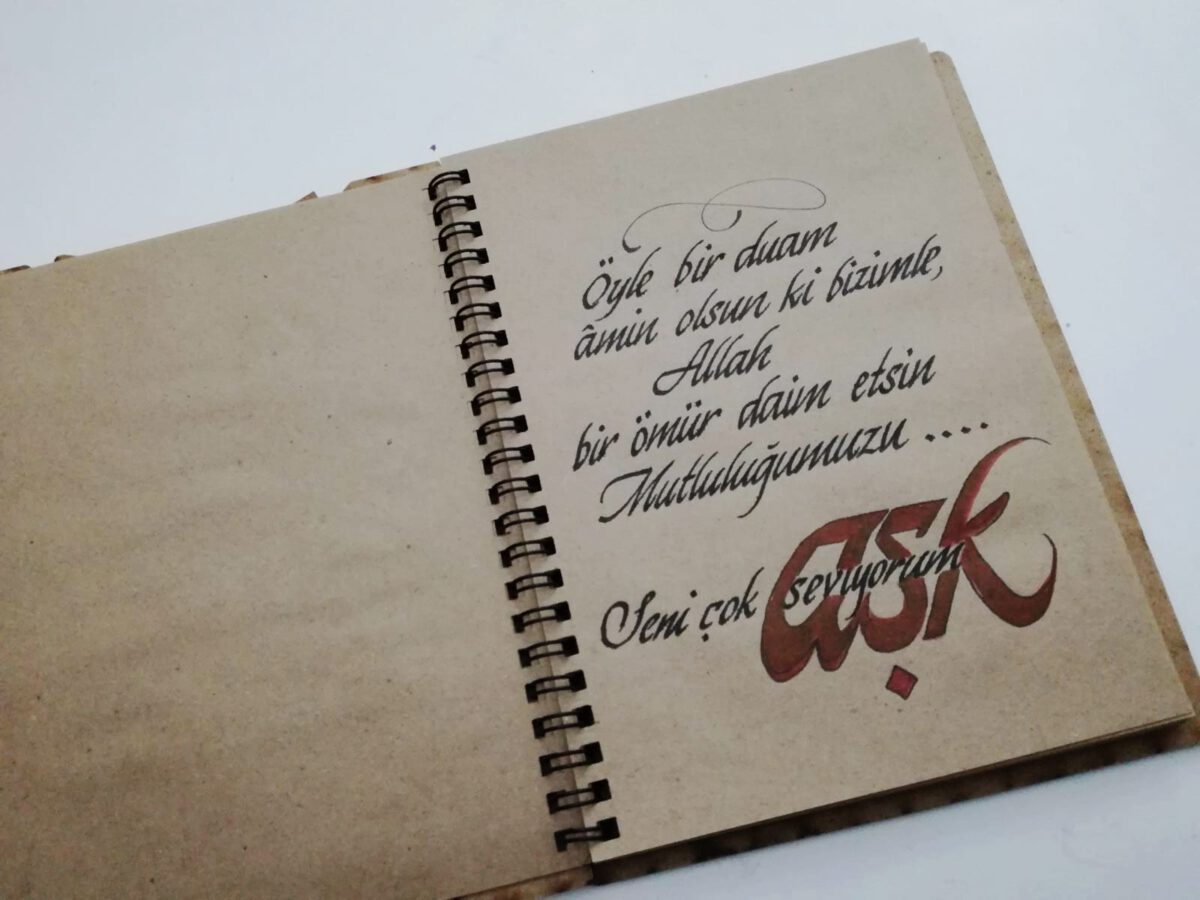 Öyle bir duam
âmin olsun ki bizimle,
Allah
bir ömür daim etsin
Mutluluğumuzu ....
aşk
Seni çok seviyorum